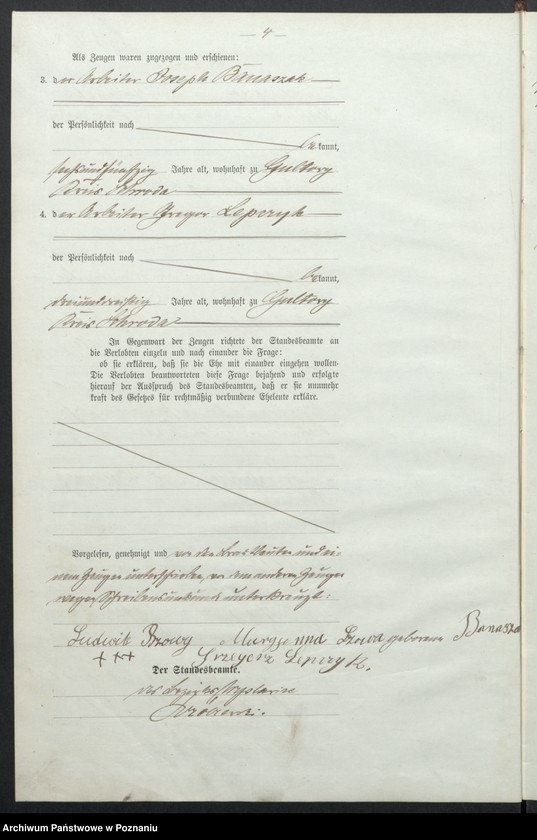 — 4 —
Als Zeugen waren zugezogen und erschienen:
3. der Arbeiter Joseph Banaszak
der Persönlichkeit nach
bekannt,
sechsundfünfzig Jahre alt, wohnhaft zu Gultowy
Kreis Schroda
4. der Arbeiter Gregor Lepczyk
der Persönlichkeit nach
bekannt,
dreiunddreißig Jahre alt, wohnhaft zu Gultowy
Kreis Schroda
In Gegenwart der Zeugen richtete der Standesbeamte an
die Verlobten einzeln und nach einander die Frage:
ob sie erklären, daß sie die Ehe mit einander eingehen wollen.
Die Verlobten beantworteten diese Frage bejahend und erfolgte
hierauf der Ausspruch des Standesbeamten, daß er sie nunmehr
kraft des Gesetzes für rechtmäßig verbundene Eheleute erkläre.
Vorgelesen, genehmigt und von den Eheleuten und ei-
nem Zeugen unterschrieben, von dem anderen Zeugen
wegen Schreibensunkunde unterkreuzt:
Ludwik Maryjanna geborene Banaszak
+++ Grzegorz Lepczyk.
Der Standesbeamte.
Archiwum Państwowe w Poznaniu